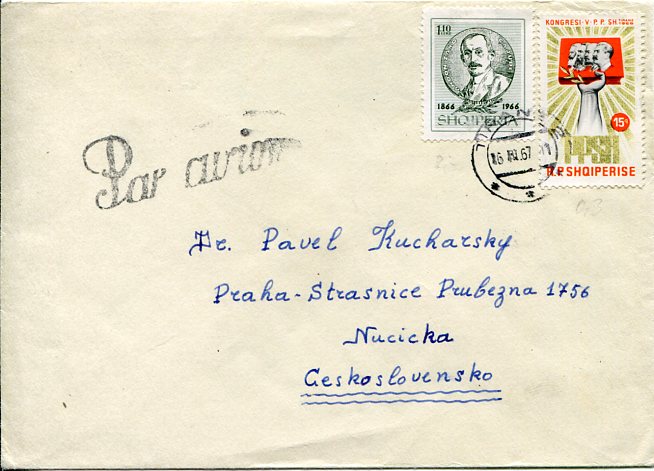 1.10
1866 1966
SHQIPERIA
KONGRESI · V · P.P. SH.
15q
PPSH
R.P SHQIPERISE
16 67
Par avion
Dr. Pavel Kucharsky
Praha-Strasnice Prubezna 1756
Nucicka
Ceskoslovensko